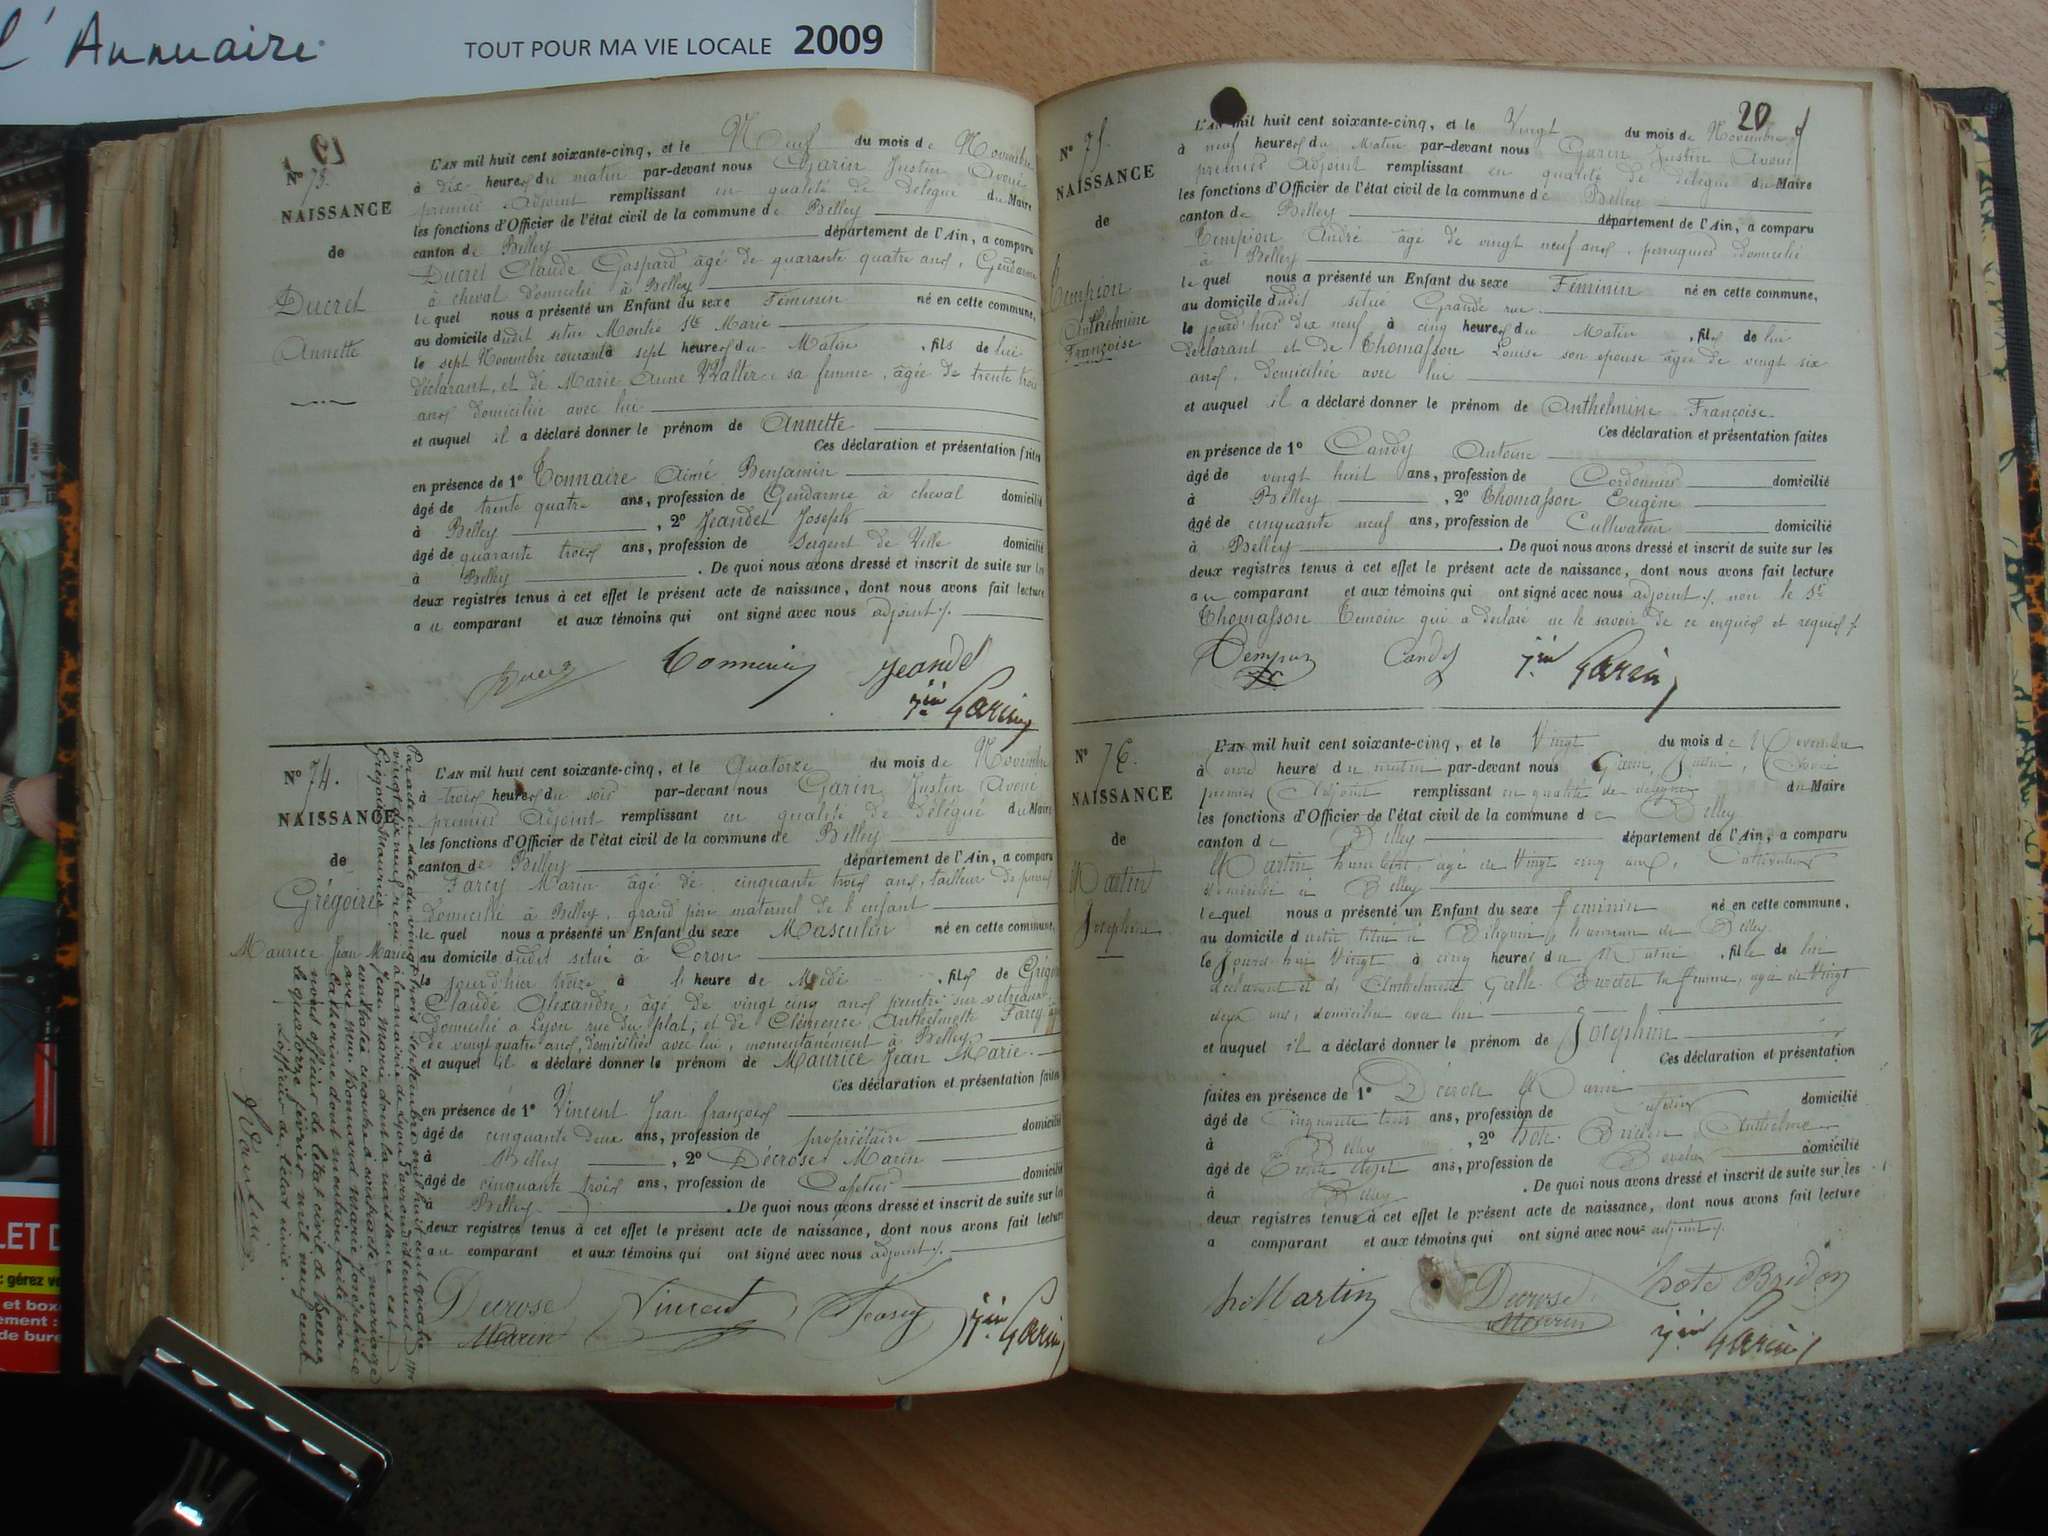 l'Annuaire
TOUT POUR MA VIE LOCALE 2009
N° 73.
NAISSANCE
de
Ducret
Annette
L'AN mil huit cent soixante-cinq, et le Neuf du mois de Novembre
à dix heures du matin par-devant nous Garin Justin Avoué
premier Adjoint remplissant en qualité de Délégué du Maire
les fonctions d'Officier de l'état civil de la commune de Belley
canton de Belley département de l'Ain, a comparu
Ducret Claude Gaspard âgé de quarante quatre ans, Gendarme
à cheval domicilié à Belley
le quel nous a présenté un Enfant du sexe Féminin né en cette commune,
au domicile dudit situé Montée Ste Marie
le sept Novembre courant à sept heures du Matin, fils de lui
déclarant, et de Marie Anne Walter, sa femme, âgée de trente trois
ans domiciliée avec lui
et auquel il a déclaré donner le prénom de Annette
Ces déclaration et présentation faites
en présence de 1° Tonnaire Aimé Benjamin
âgé de trente quatre ans, profession de Gendarme à cheval domicilié
à Belley, 2° Jeandet Joseph
âgé de quarante trois ans, profession de Sergent de Ville domicilié
à Belley. De quoi nous avons dressé et inscrit de suite sur les
deux registres tenus à cet effet le présent acte de naissance, dont nous avons fait lecture
au comparant et aux témoins qui ont signé avec nous adjoint
Jeandet
Jin Garin
N° 74.
NAISSANCE
de
Grégoire
Maurice Jean Marie
L'AN mil huit cent soixante-cinq, et le Quatorze du mois de Novembre
à trois heures du soir par-devant nous Garin Justin Avoué
premier Adjoint remplissant en qualité de Délégué du Maire
les fonctions d'Officier de l'état civil de la commune de Belley
canton de Belley département de l'Ain, a comparu
Farcy Marin âgé de cinquante trois ans, tailleur de pierres
domicilié à Belley, grand père maternel de l'enfant
le quel nous a présenté un Enfant du sexe Masculin né en cette commune,
au domicile dudit situé à Coron
le jourd'hier treize à heure de Midi, fils de Grégoire
Claude Alexandre, âgé de vingt cinq ans peintre sur vitreaux
domicilié à Lyon rue du plat, et de Clémence Anthelmette Farcy
de vingt quatre ans, domiciliée avec lui, momentanément à Belley
et auquel il a déclaré donner le prénom de Maurice Jean Marie
Ces déclaration et présentation faites
en présence de 1° Vincent Jean François
âgé de cinquante deux ans, profession de propriétaire domicilié
à Belley, 2° Decrose Marin
âgé de cinquante trois ans, profession de Cafetier domicilié
à Belley. De quoi nous avons dressé et inscrit de suite sur les
deux registres tenus à cet effet le présent acte de naissance, dont nous avons fait lecture
au comparant et aux témoins qui ont signé avec nous adjoint
Decrose Marin Vincent Farcy Jin Garin
Par acte en date du vingt trois septembre mil huit cent quatre
vingt dix neuf reçu à la mairie de Lyon
Grégoire Maurice Jean Marie dont la naissance est
constatée ci contre a contracté mariage
avec Bonnard Marie Joséphine
mention faite par
nous officier de l'état civil de Belley
le quatorze février mil neuf cent
L'officier de l'état civil.
20
N° 75.
NAISSANCE
de
Tempion
Anthelmine
Françoise
L'AN mil huit cent soixante-cinq, et le Vingt du mois de Novembre
à neuf heures du Matin par-devant nous Garin Justin Avoué
premier Adjoint remplissant en qualité de délégué du Maire
les fonctions d'Officier de l'état civil de la commune de Belley
canton de Belley département de l'Ain, a comparu
Tempion André âgé de vingt neuf ans, perruquier domicilié
à Belley
le quel nous a présenté un Enfant du sexe Féminin né en cette commune,
au domicile dudit situé Grande rue
le jourd'hier dix neuf à cinq heures du Matin, fils de lui
déclarant et de Thomasson Louise son épouse âgée de vingt six
ans, domiciliée avec lui
et auquel il a déclaré donner le prénom de Anthelmine Françoise.
Ces déclaration et présentation faites
en présence de 1° Candy Antoine
âgé de vingt huit ans, profession de Cordonnier domicilié
à Belley, 2° Thomasson Eugène
âgé de cinquante neuf ans, profession de Cultivateur domicilié
à Belley. De quoi nous avons dressé et inscrit de suite sur les
deux registres tenus à cet effet le présent acte de naissance, dont nous avons fait lecture
au comparant et aux témoins qui ont signé avec nous adjoint non le Sr
Thomasson Témoin qui a déclaré ne le savoir de ce enquis et requis
Candy Jin Garin
N° 76.
NAISSANCE
de
Martin
Joséphine
L'AN mil huit cent soixante-cinq, et le Vingt du mois de Novembre
à onze heure du matin par-devant nous Garin, Justin, Avoué
premier Adjoint remplissant en qualité de délégué du Maire
les fonctions d'Officier de l'état civil de la commune de Belley
canton de Belley département de l'Ain, a comparu
Martin Humbert, âgé de Vingt cinq ans, Cultivateur
domicilié à Belley
le quel nous a présenté un Enfant du sexe féminin né en cette commune,
au domicile commune de Belley
le jourd'hui Vingt à cinq heures du Matin, fille de lui
déclarant et de Anthelmette sa femme, âgée de Vingt
deux ans, domiciliée avec lui
et auquel il a déclaré donner le prénom de Joséphine
Ces déclaration et présentation
faites en présence de 1° Décrose Marin
âgé de Cinquante trois ans, profession de Cafetier domicilié
à Belley, 2° hote Bridon Anthelme
âgé de Trente sept ans, profession de domicilié
à Belley. De quoi nous avons dressé et inscrit de suite sur les
deux registres tenus à cet effet le présent acte de naissance, dont nous avons fait lecture
a comparant et aux témoins qui ont signé avec nous adjoint
hMartin Decrose Marin hote Bridon
Jin Garin